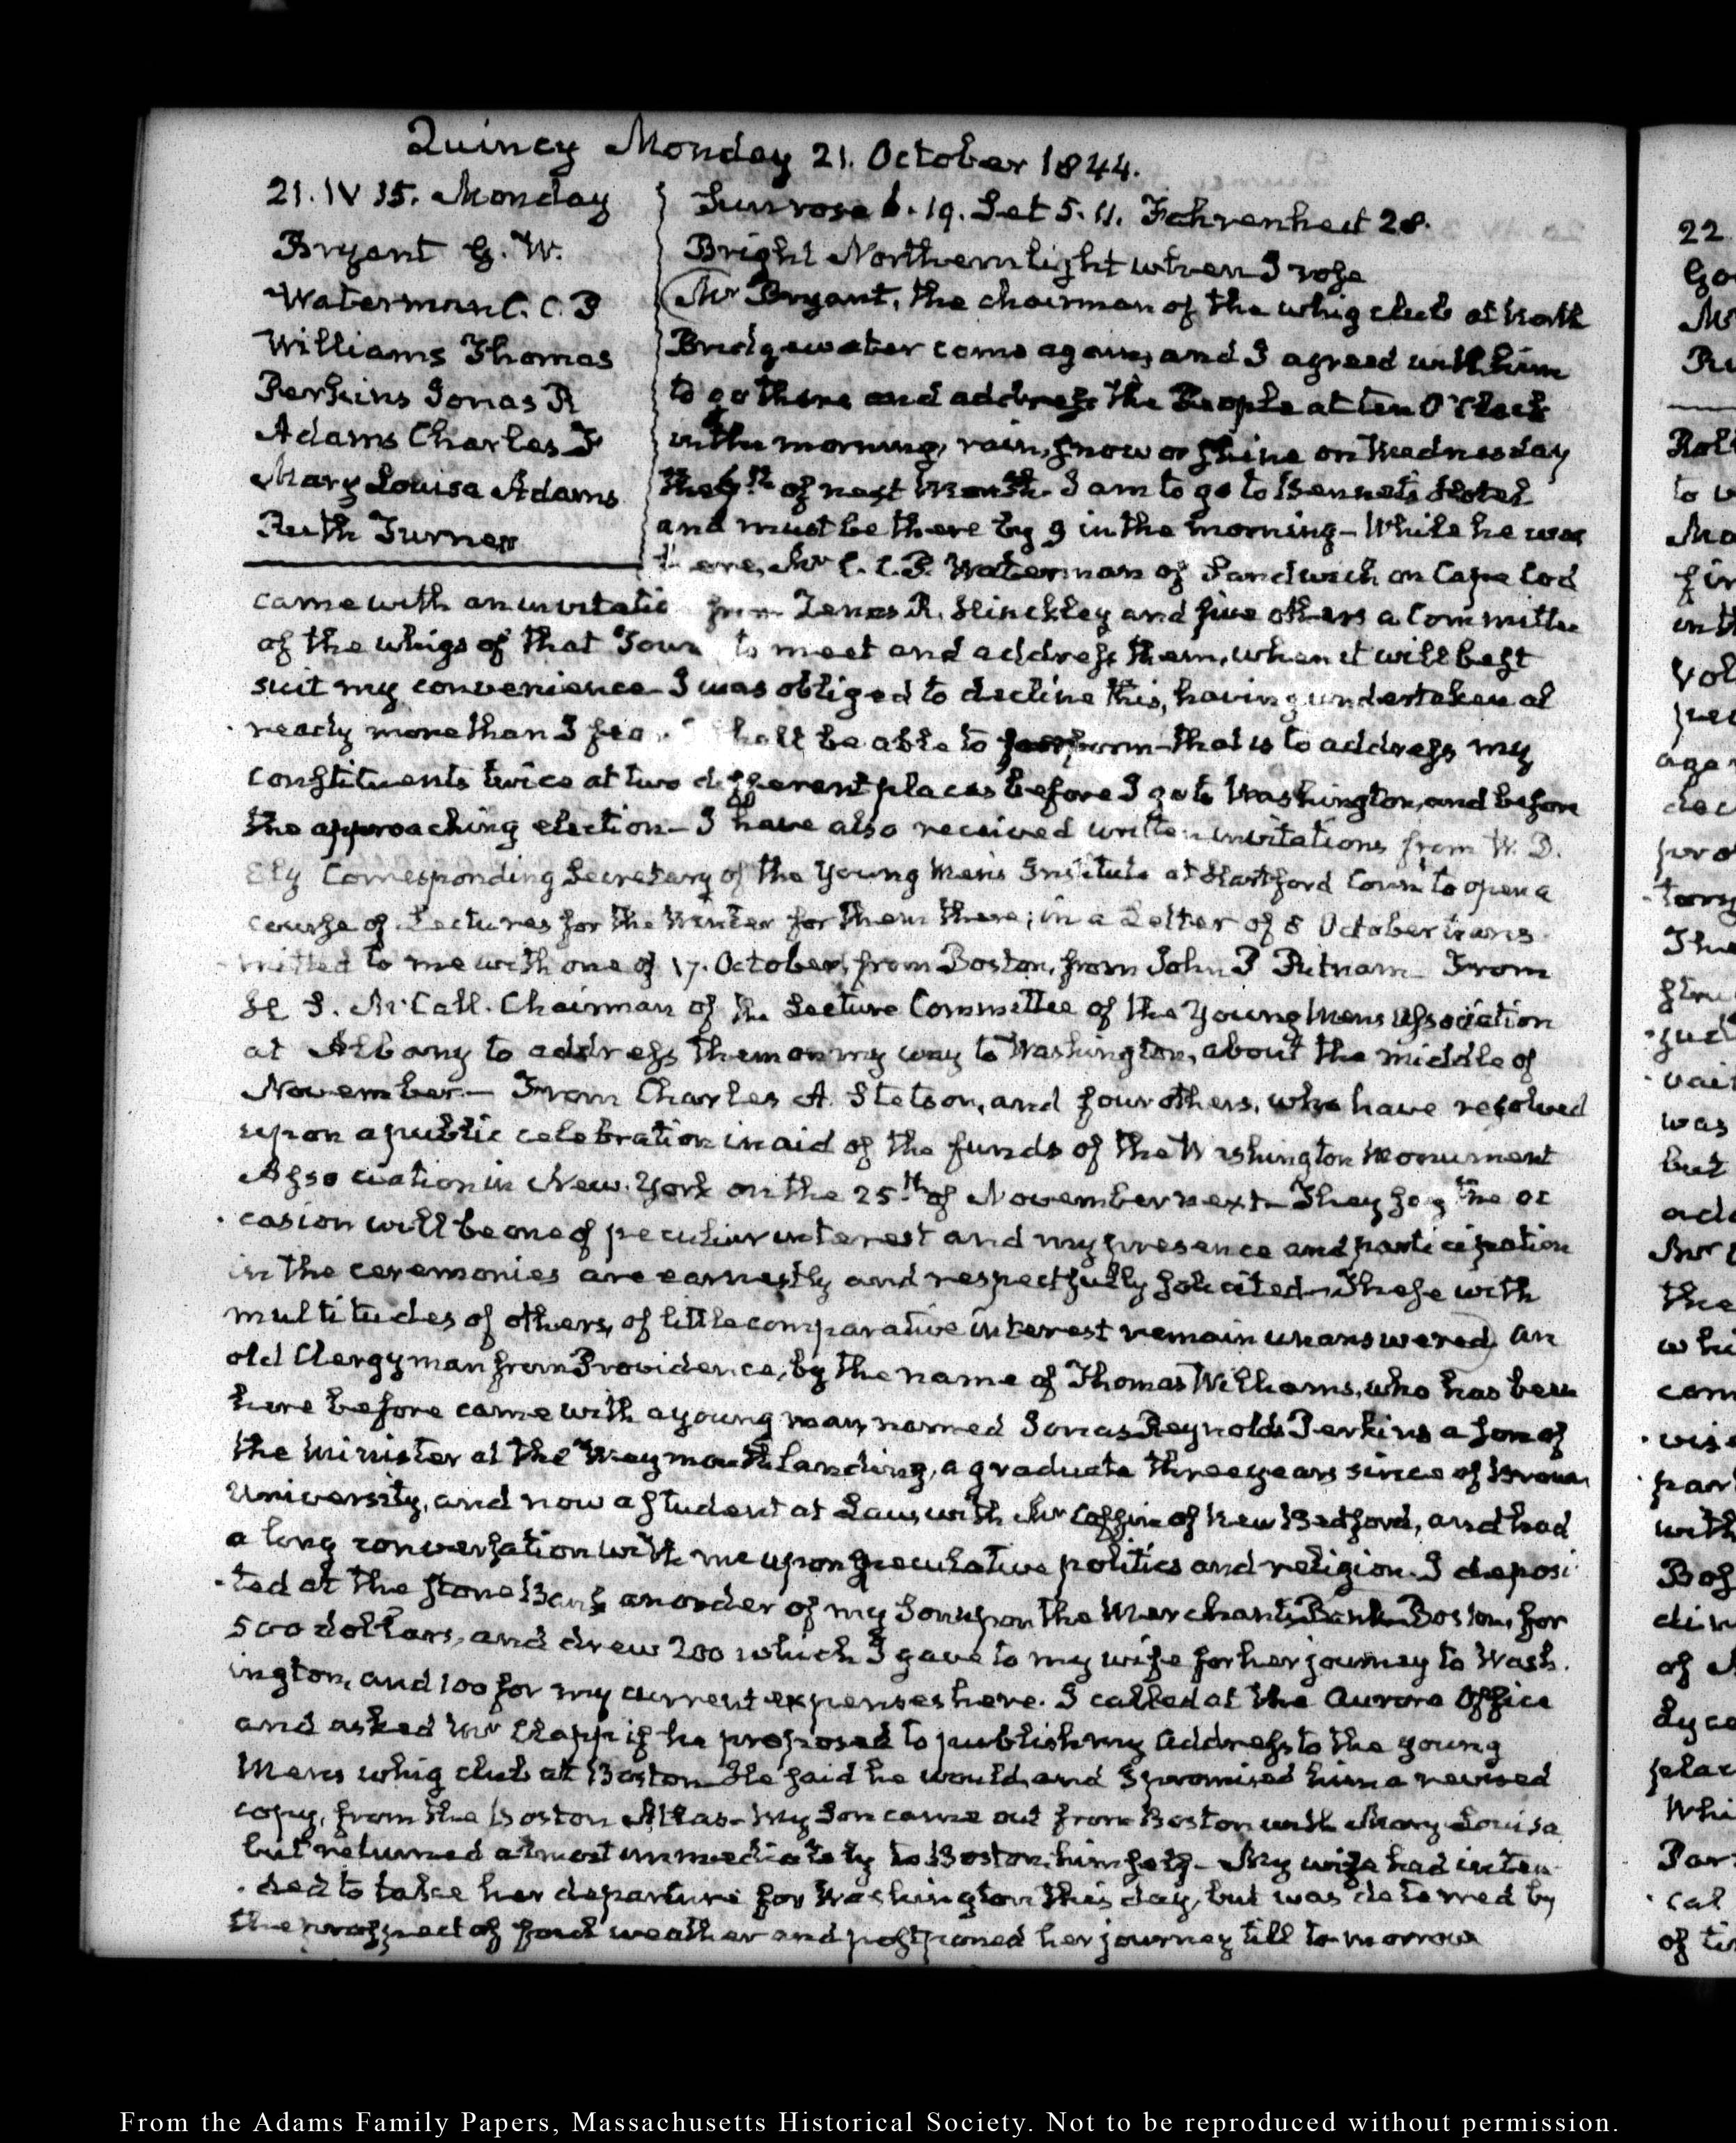 Quincy Monday 21. October 1844.
21. IV 15. Monday
Bryant G. W.
Waterman C. C. P
Williams Thomas
Perkins Jonas R
Adams Charles F
Mary Louisa Adams
Ruth Turner
Sun rose 6.19. Set 5.11. Fahrenheit 28.
Bright Northern light when I rose
Mr Bryant, the chairman of the whig club at North
Bridgewater came again, and I agreed with him
to go there and address the People at ten O'Clock
in the morning, rain, snow or shine on Wednesday
the 6th of next Month. I am to go to Bennets Hotel
and must be there by 9 in the morning— While he was
here, Mr C. C. P. Waterman of Sandwich on Cape Cod
came with an invitatio from Zenas R. Hinckley and five others a Committee
of the whigs of that Town to meet and address them, when it will best
suit my convenience— I was obliged to decline this, having undertaken al
ready more than I fear I shall be able to perform— that is to address my
constituents twice at two different places before I go to Washington, and before
the approaching election— I have also received written invitations from W. D.
Ely Corresponding Secretary of the Young Men's Institute at Hartford Conn to open a
course of Lectures for the Winter for them there; in a Letter of 8 October trans
mitted to me with one of 17. October, from Boston, from John P Putnam— From
H S. McCall. Chairman of the Lecture Committee of the Young Mens Association
at Albany to address them on my way to Washington, about the middle of
November— From Charles A. Stetson, and four others, who have resolved
upon a public celebration in aid of the funds of the Washington Monument
Association in New York on the 25th of November next— They say the oc
casion will be one of peculiar interest and my presence and participation
in the ceremonies are earnestly and respectfully solicited— These with
multitudes of others, of little comparative interest remain unanswered) an
old Clergyman from Providence, by the name of Thomas Williams, who has been
here before came with a young man, named Jonas Reynolds Perkins a son of
the Minister at the Weymouth Landing, a graduate three years since of Brown
University, and now a student at Law, with Mr Coffin of New Bedford, and had
a long conversation with me upon speculative politics and religion. I deposi
ted at the Stone Bank an order of my Son upon the Merchants Bank Boston, for
500 dollars, and drew 200 which I gave to my wife for her journey to Wash
ington, and 100 for my current expenses here. I called at the Aurora Office
and asked Mr Clapp if he proposed to publish my Address to the young
Mens whig club at Boston— He said he would, and I promised him a revised
copy, from the Boston Atlas— My Son came out from Boston with Mary Louisa
but returned almost immediately to Boston himself— My wife had inten
ded to take her departure for Washington this day, but was deterred by
the prospect of foul weather and postponed her journey till to-morrow
22
From the Adams Family Papers, Massachusetts Historical Society. Not to be reproduced without permission.